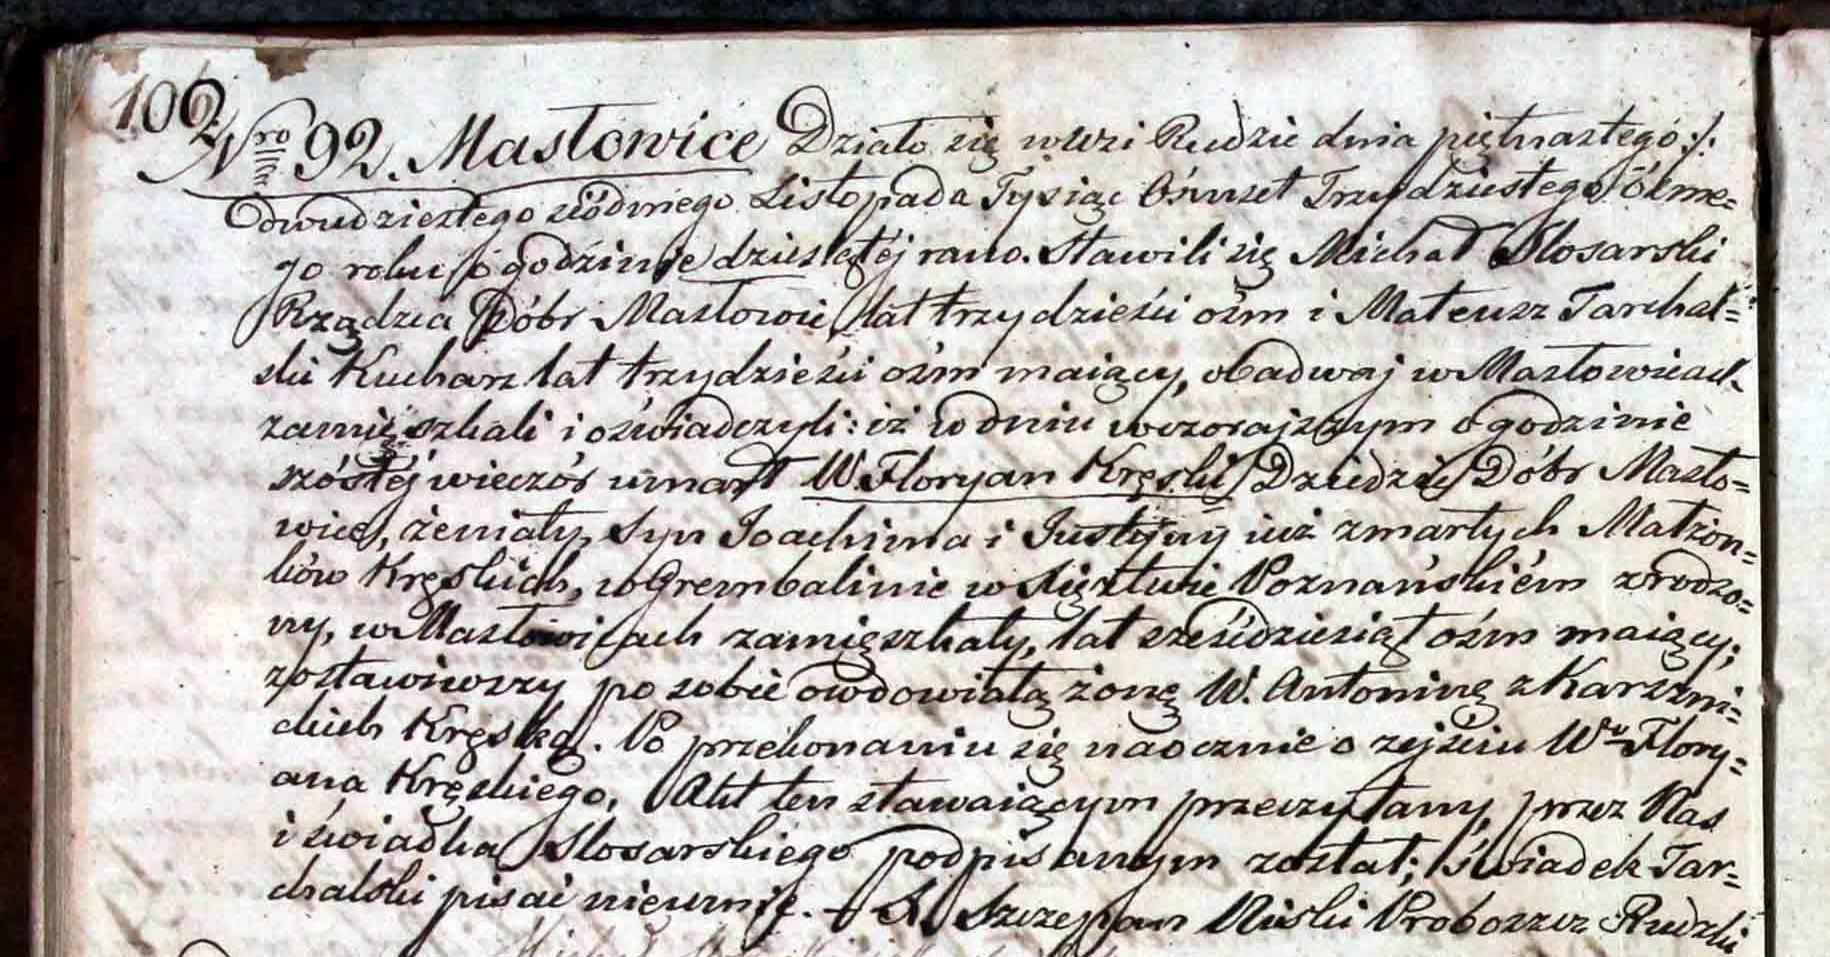 106
Nro 92. Masłowice Działo się w wsi Rudzie dnia piętnastego /:
dwudziestego siódmego Listopada Tysiąc Ośmset Trzydziestego ósme=
go roku o godzinie dziesiątej rano. Stawili się Michał Slosarski
Rządzca Dóbr Masłowic lat trzydzieści ośm i Mateusz Tarchal=
ski Kucharz lat trzydzieści ośm maiący, obadwaj w Masłowicach
zamięszkali i oświadczyli: iż w dniu wczorajszym o godzinie
szóstéj wieczór umarł W Floryan Kręski Dziedzic Dóbr Masło=
wice, żeniały, syn Joachima i Justyny iuż zmarłych Małżon=
ków Kręskich, w Grembalinie w Xięztwie Poznańskiém zrodzo=
ny, w Masłowicach zamięszkały, lat sześćdziesiąt ośm maiący;
zostawiwszy po sobie owdowiałą żonę W. Antoninę z Karszni=
ckich Kręską. Po przekonaniu się naocznie o zejściu Wo Flory=
ana Kręskiego, Akt ten stawaiącym przeczytany, przez Nas
i świadka Slosarskiego podpisanym został; świadek Tar=
chalski pisać nieumie. – X. Szczepan Proboszcz Rudzki